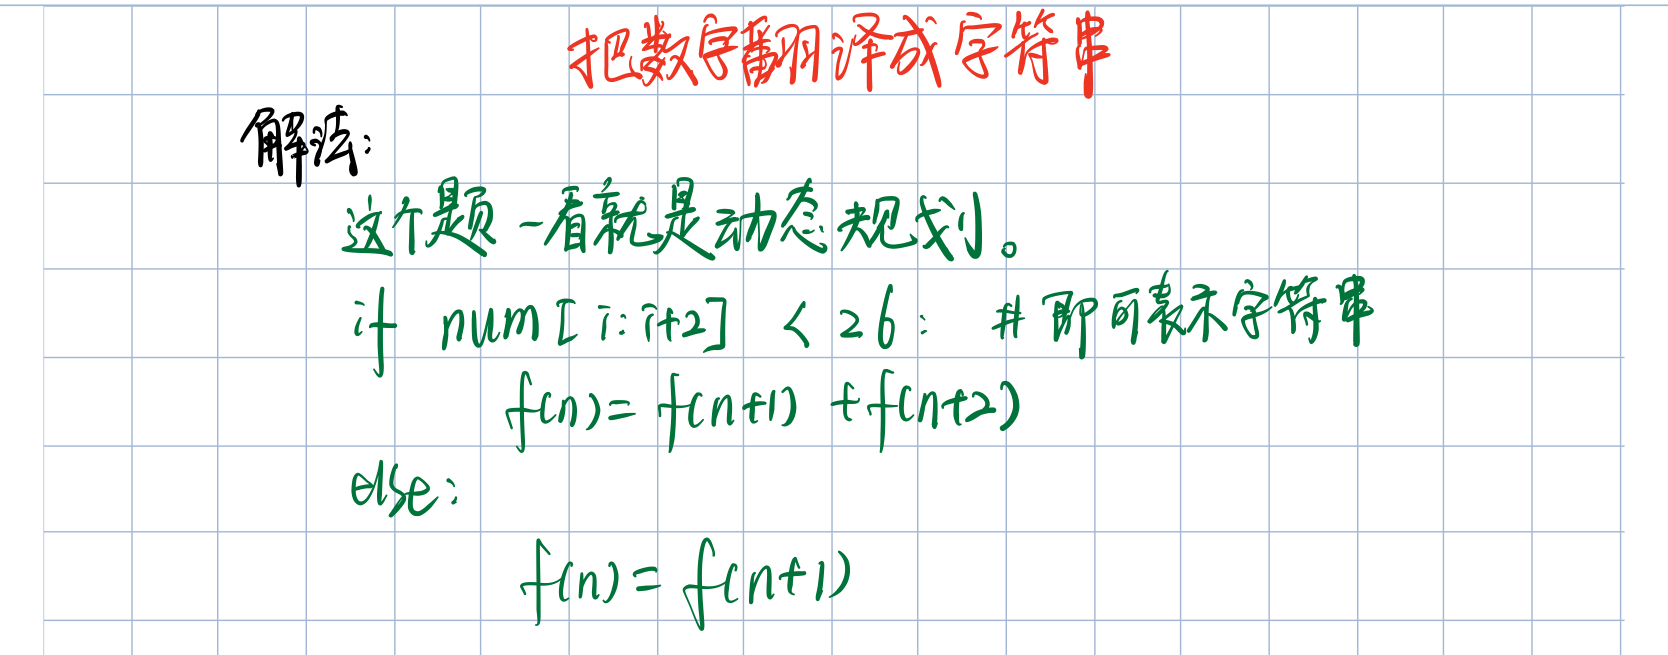 把数字翻译成字符串
解法:
这个题一看就是动态规划。
if num[i:i+2] < 26: # 即可表示字符串
f(n)= f(n+1) +f(n+2)
else:
f(n)= f(n+1)